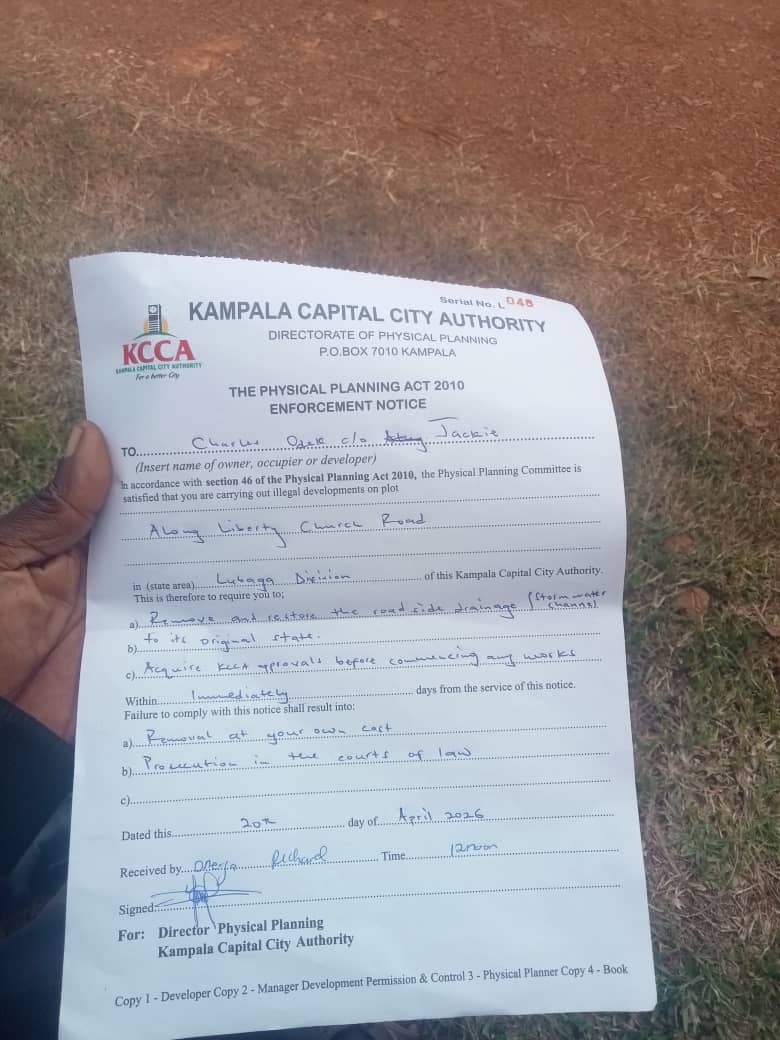 Serial No. L 048
KAMPALA CAPITAL CITY AUTHORITY
DIRECTORATE OF PHYSICAL PLANNING
P.O.BOX 7010 KAMPALA
KCCA
KAMPALA CAPITAL CITY AUTHORITY
For a better City
THE PHYSICAL PLANNING ACT 2010
ENFORCEMENT NOTICE
TO Charles c/o Jackie
(Insert name of owner, occupier or developer)
In accordance with section 46 of the Physical Planning Act 2010, the Physical Planning Committee is
satisfied that you are carrying out illegal developments on plot
Along Liberty Church Road
in (state area) Lubaga Division of this Kampala Capital City Authority.
This is therefore to require you to;
a) Remove and restore the road side drainage (Storm water channel
b) to its original state.
c) Acquire KCCA approvals before commencing any works
Within Immediately days from the service of this notice.
Failure to comply with this notice shall result into:
a) Removal at your own cost
b) Prosecution in the courts of law
c)
Dated this 20th day of April 2026
Received by Richard Time 12noon
Signed
For: Director Physical Planning
Kampala Capital City Authority
Copy 1 - Developer Copy 2 - Manager Development Permission & Control 3 - Physical Planner Copy 4 - Book